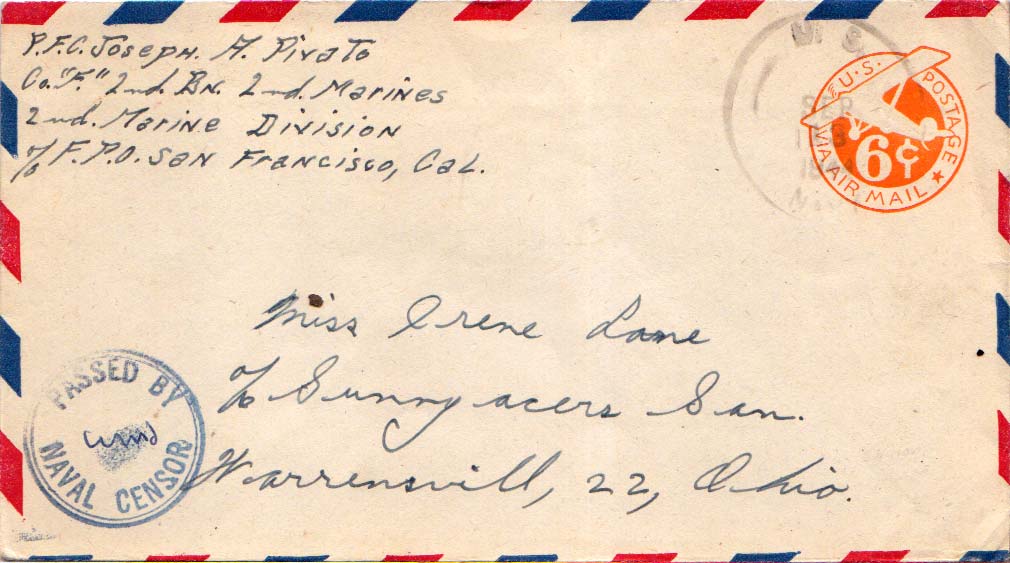 P.F.C. Joseph. A. Pivato
Co. "F." 2nd. Bn. 2nd. Marines
2nd. Marine Division
c/o F.P.O. San Francisco, Cal.
U.S.
SEP
U.S. POSTAGE
6¢
VIA AIR MAIL
Miss Irene Lane
c/o Sunny acers San.
Warrensvill, 22, Ohio.
PASSED BY
NAVAL CENSOR